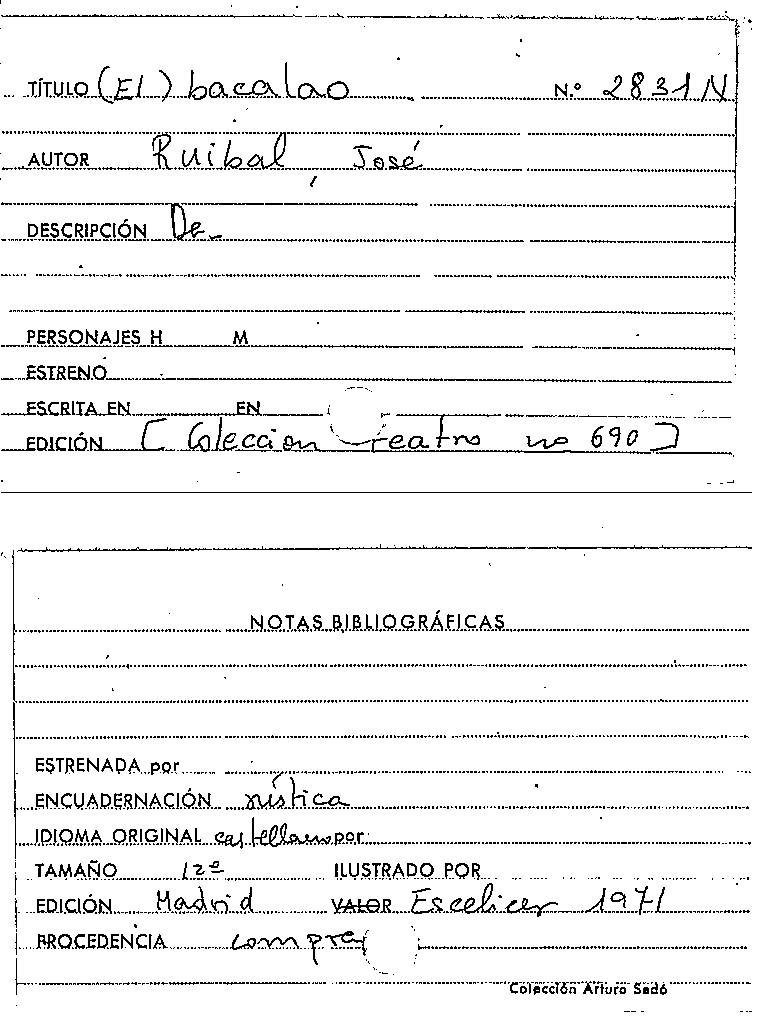 TÍTULO (El) bacalao N.º 2831N
AUTOR Ruibal, José
DESCRIPCIÓN De_
PERSONAJES H M
ESTRENO
ESCRITA EN EN
EDICIÓN [Coleccion teatro no 690]
NOTAS BIBLIOGRÁFICAS
ESTRENADA por
ENCUADERNACIÓN rústica
IDIOMA ORIGINAL castellano por
TAMAÑO 12º ILUSTRADO POR
EDICIÓN Madrid VALOR Escelicer 1971
PROCEDENCIA compra
Colección Arturo Sedó